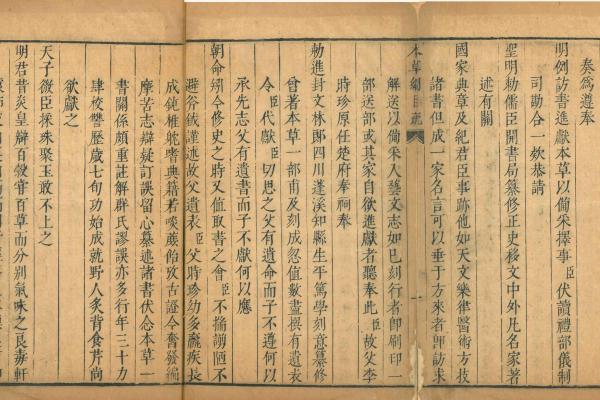 奏爲遵奉
明例訪書進獻本草以備采擇事臣伏讀禮部儀制
司勘合一欵恭請
聖明勅儒臣開書局纂修正史移文中外凡名家著
述有關
國家典章及紀君臣事跡他如天文樂律醫術方技
諸書但成一家名言可以垂于方來者卽訪求
本草綱目疏
一
解送以備采入藝文志如已刻行者卽刷印一
部送部或其家自欲進獻者聽奉此臣故父李
時珍原任楚府奉祠奉
勅進封文林郎四川蓬溪知縣生平篤學刻意纂修
曾著本草一部甫及刻成忽值數盡撰有遺表
令臣代獻臣切思之父有遺命而子不遵何以
承先志父有遺書而子不獻何以應
朝命矧今修史之時又值取書之會臣不揣謭陋不
避斧鉞謹述故父遺表臣父時珍幼多羸疾長
成鈍椎躭嗜典籍若啖蔗飴攷古證今奮發編
摩苦志辯疑訂誤留心纂述諸書伏念本草一
書關係頗重註解群氏謬誤亦多行年三十力
肆校讐歷歲七旬功始成就野人炙背食芹尚
欲獻之
天子微臣採珠聚玉敢不上之
明君昔炎皇辯百穀嘗百草而分別氣味之良毒軒